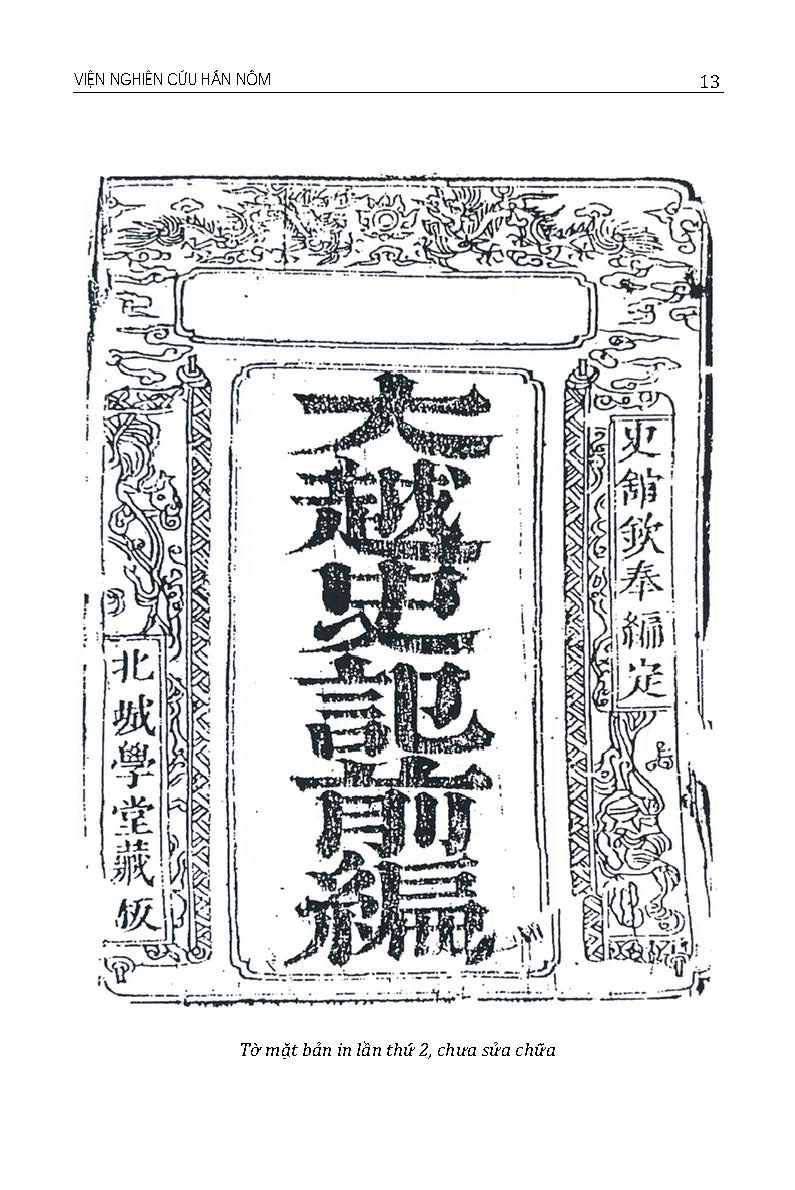 VIỆN NGHIÊN CỨU HÁN NÔM 13
史館欽奉編定
大越史記前編
北城學堂藏板
Tờ mặt bản in lần thứ 2, chưa sửa chữa